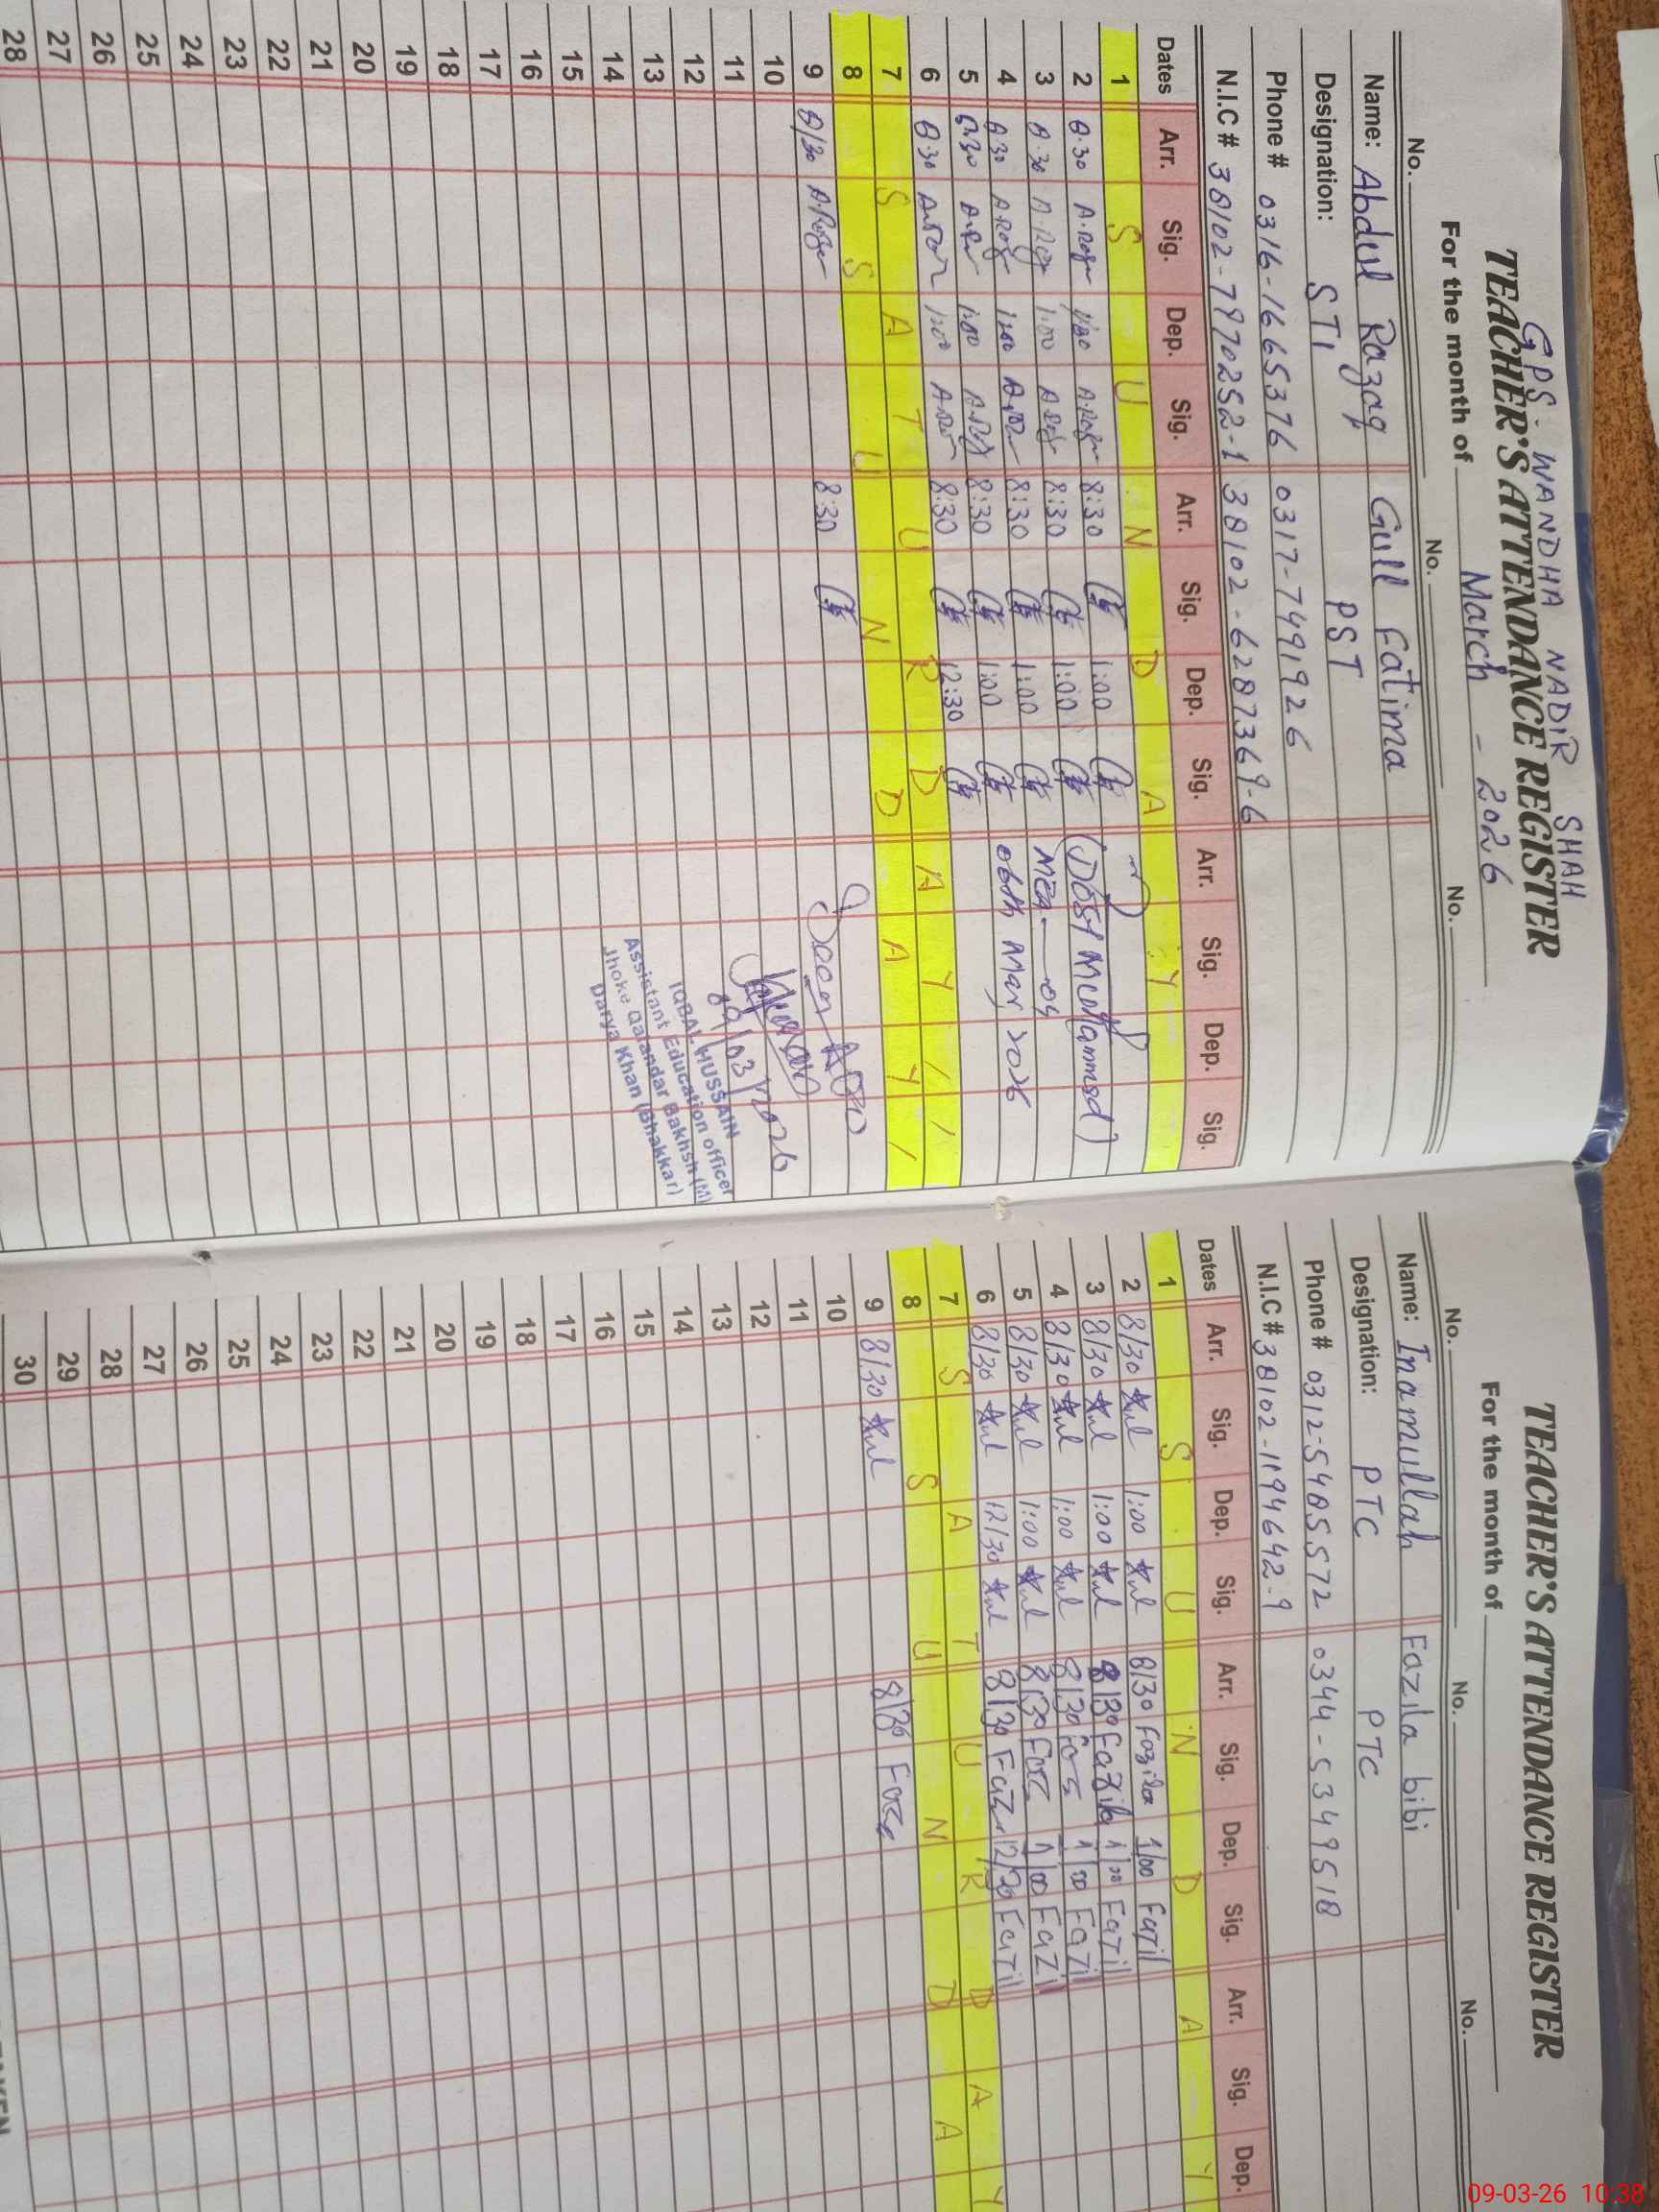 GPS. WANDHA NADIR SHAH
TEACHER'S ATTENDANCE REGISTER
For the month of March - 2026
No. No. No.
Name: Abdul Razaq Gull Fatima
Designation: STI PST
Phone # 0316-1665376 0317-7491926
N.I.C # 38102-7970252-1 38102-6287369-6
Dates Arr. Sig. Dep. Sig. Arr. Sig. Dep. Sig. Arr. Sig. Dep. Sig.
1 S U N D A Y
2 8.30 1:00 8:30 1:00 (Dost Muhammad)
3 8.30 1:00 8:30 1:00 MEA
4 8.30 1:00 8:30 1:00 06th Mar, 2026
5 8.30 1:00 8:30 1:00
6 8.30 8:30 12:30
7 S A T U R D A Y
8 S U N D A Y
9 8/30 8:30
10
11 09/03/2026
12 IQBAL HUSSAIN
13 Assistant Education officer
14 Jhoke Qalandar Bakhsh (M)
Darya Khan (Bhakkar)
15
16
17
18
19
20
21
22
23
24
25
26
27
28
TEACHER'S ATTENDANCE REGISTER
For the month of
No. No. No.
Name: Inamullah Fazila bibi
Designation: PTC PTC
Phone # 0312-5485572 0344-5349518
N.I.C # 38102-1194642-9
Dates Arr. Sig. Dep. Sig. Arr. Sig. Dep. Sig. Arr. Sig. Dep.
1 S U N D A Y
2 8/30 1:00 8/30 Fazila 1/00 Fazil
3 8/30 1:00 8/30 Fazila 1/00 Fazil
4 8/30 1:00 8/30 1/00 Fazil
5 8/30 1:00 8/30 1/00 Fazil
6 8/30 12/30 8/30 12/30 Fazil
7 S A T U R D A Y
8 S U N D A
9 8/30 8/30
10
11
12
13
14
15
16
17
18
19
20
21
22
23
24
25
26
27
28
29
30
09-03-26 10:38